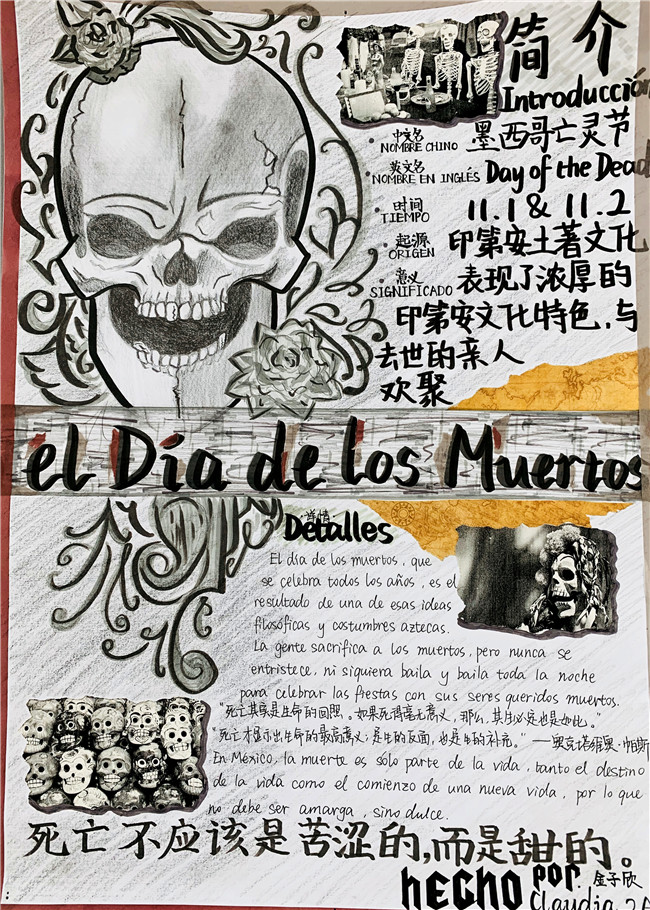 简介
Introducción
中文名 墨西哥亡灵节
NOMBRE CHINO
英文名 Day of the Dead
NOMBRE EN INGLÉS
时间 11.1 & 11.2
TIEMPO
起源 印第安土著文化
ORIGEN
意义 表现了浓厚的
SIGNIFICADO
印第安文化特色,与
去世的亲人
欢聚
el Día de los Muertos
详情
Detalles
El día de los muertos, que
se celebra todos los años, es el
resultado de una de esas ideas
filosóficas y costumbres aztecas.
La gente sacrifica a los muertos, pero nunca se
entristece, ni siquiera baila y baila toda la noche
para celebrar las fiestas con sus seres queridos muertos.
"死亡其实是生命的回照。如果死得毫无意义,那么,其生必定也是如此。"
"死亡才显示出生命的最高意义;是生的反面,也是生的补充。" ——奥克塔维奥·帕斯
En México, la muerte es sólo parte de la vida, tanto el destino
de la vida como el comienzo de una nueva vida, por lo que
no debe ser amarga, sino dulce.
死亡不应该是苦涩的,而是甜的。
HECHO por. 金子欣
Claudia